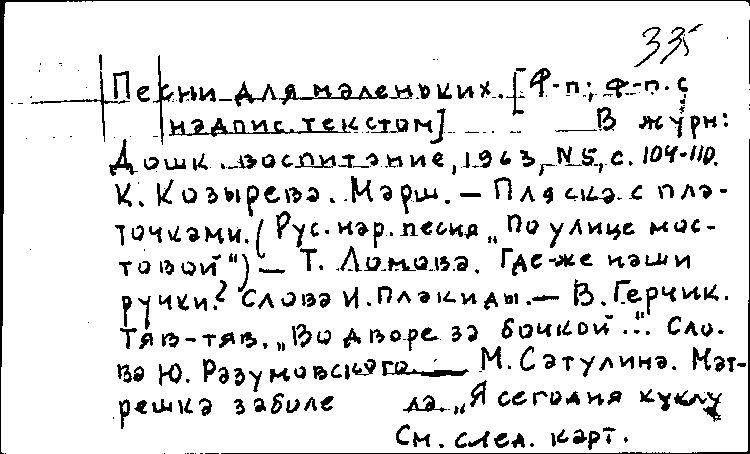 335
Песни для маленьких. [Ф-п; ф-п. с
надпис. текстом] В журн:
Дошк. воспитание, 1963, №5, с. 104-110.
К. Козырева. Марш. — Пляска с пла-
точками. (Рус. нар. песня „По улице мос-
товой") — Т. Ломова. Где-же наши
ручки? Слова И. Плакиды. — В. Герчик.
Тяв-тяв. „Во дворе за бочкой..." Сло-
ва Ю. Разумовского. — М. Сатулина. Мат-
решка заболе ла. „Я сегодня куклу
См. след. карт.